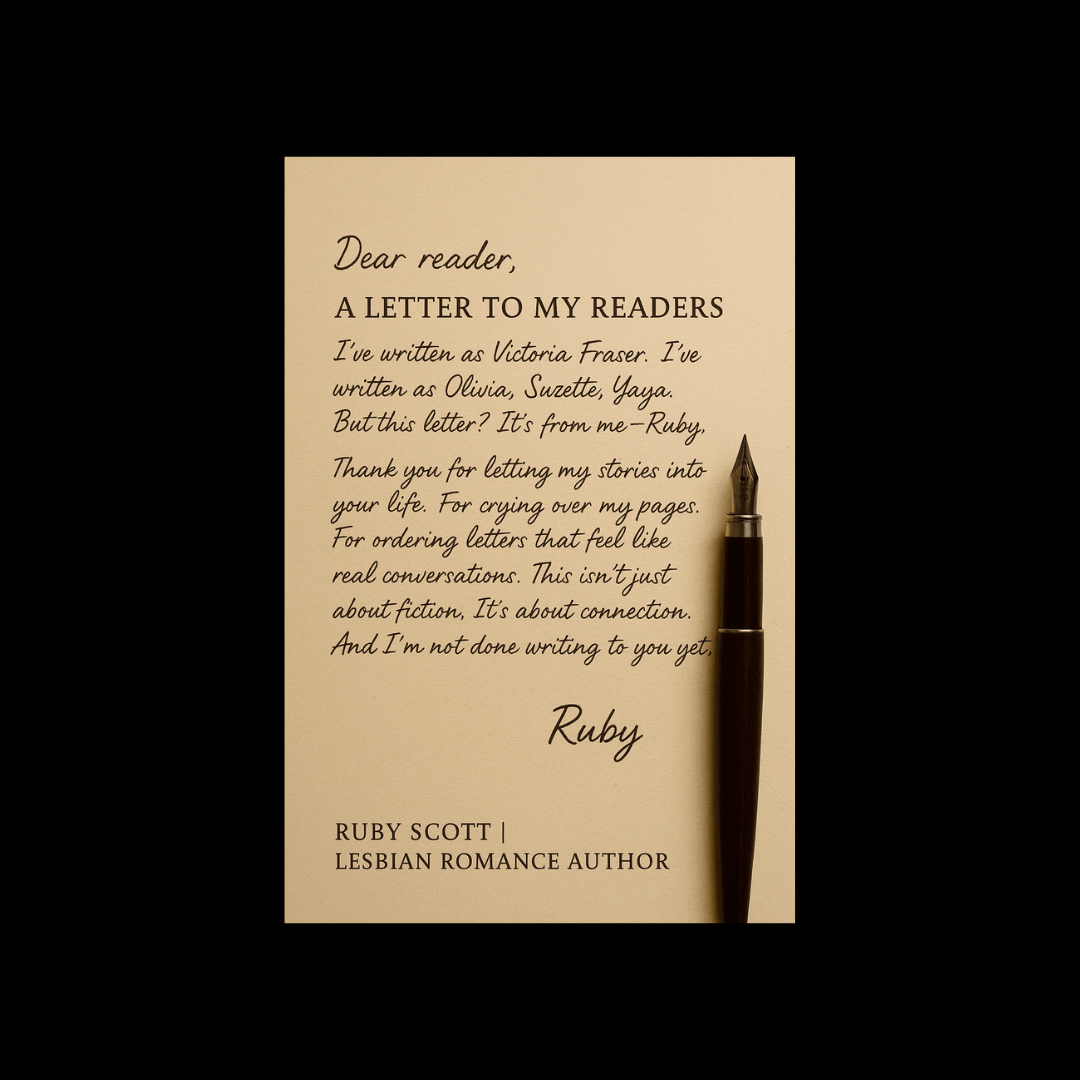 Dear reader,
A LETTER TO MY READERS
I've written as Victoria Fraser. I've
written as Olivia, Suzette, Yaya.
But this letter? It's from me—Ruby,
Thank you for letting my stories into
your life. For crying over my pages.
For ordering letters that feel like
real conversations. This isn't just
about fiction, It's about connection.
And I'm not done writing to you yet,
Ruby
RUBY SCOTT |
LESBIAN ROMANCE AUTHOR